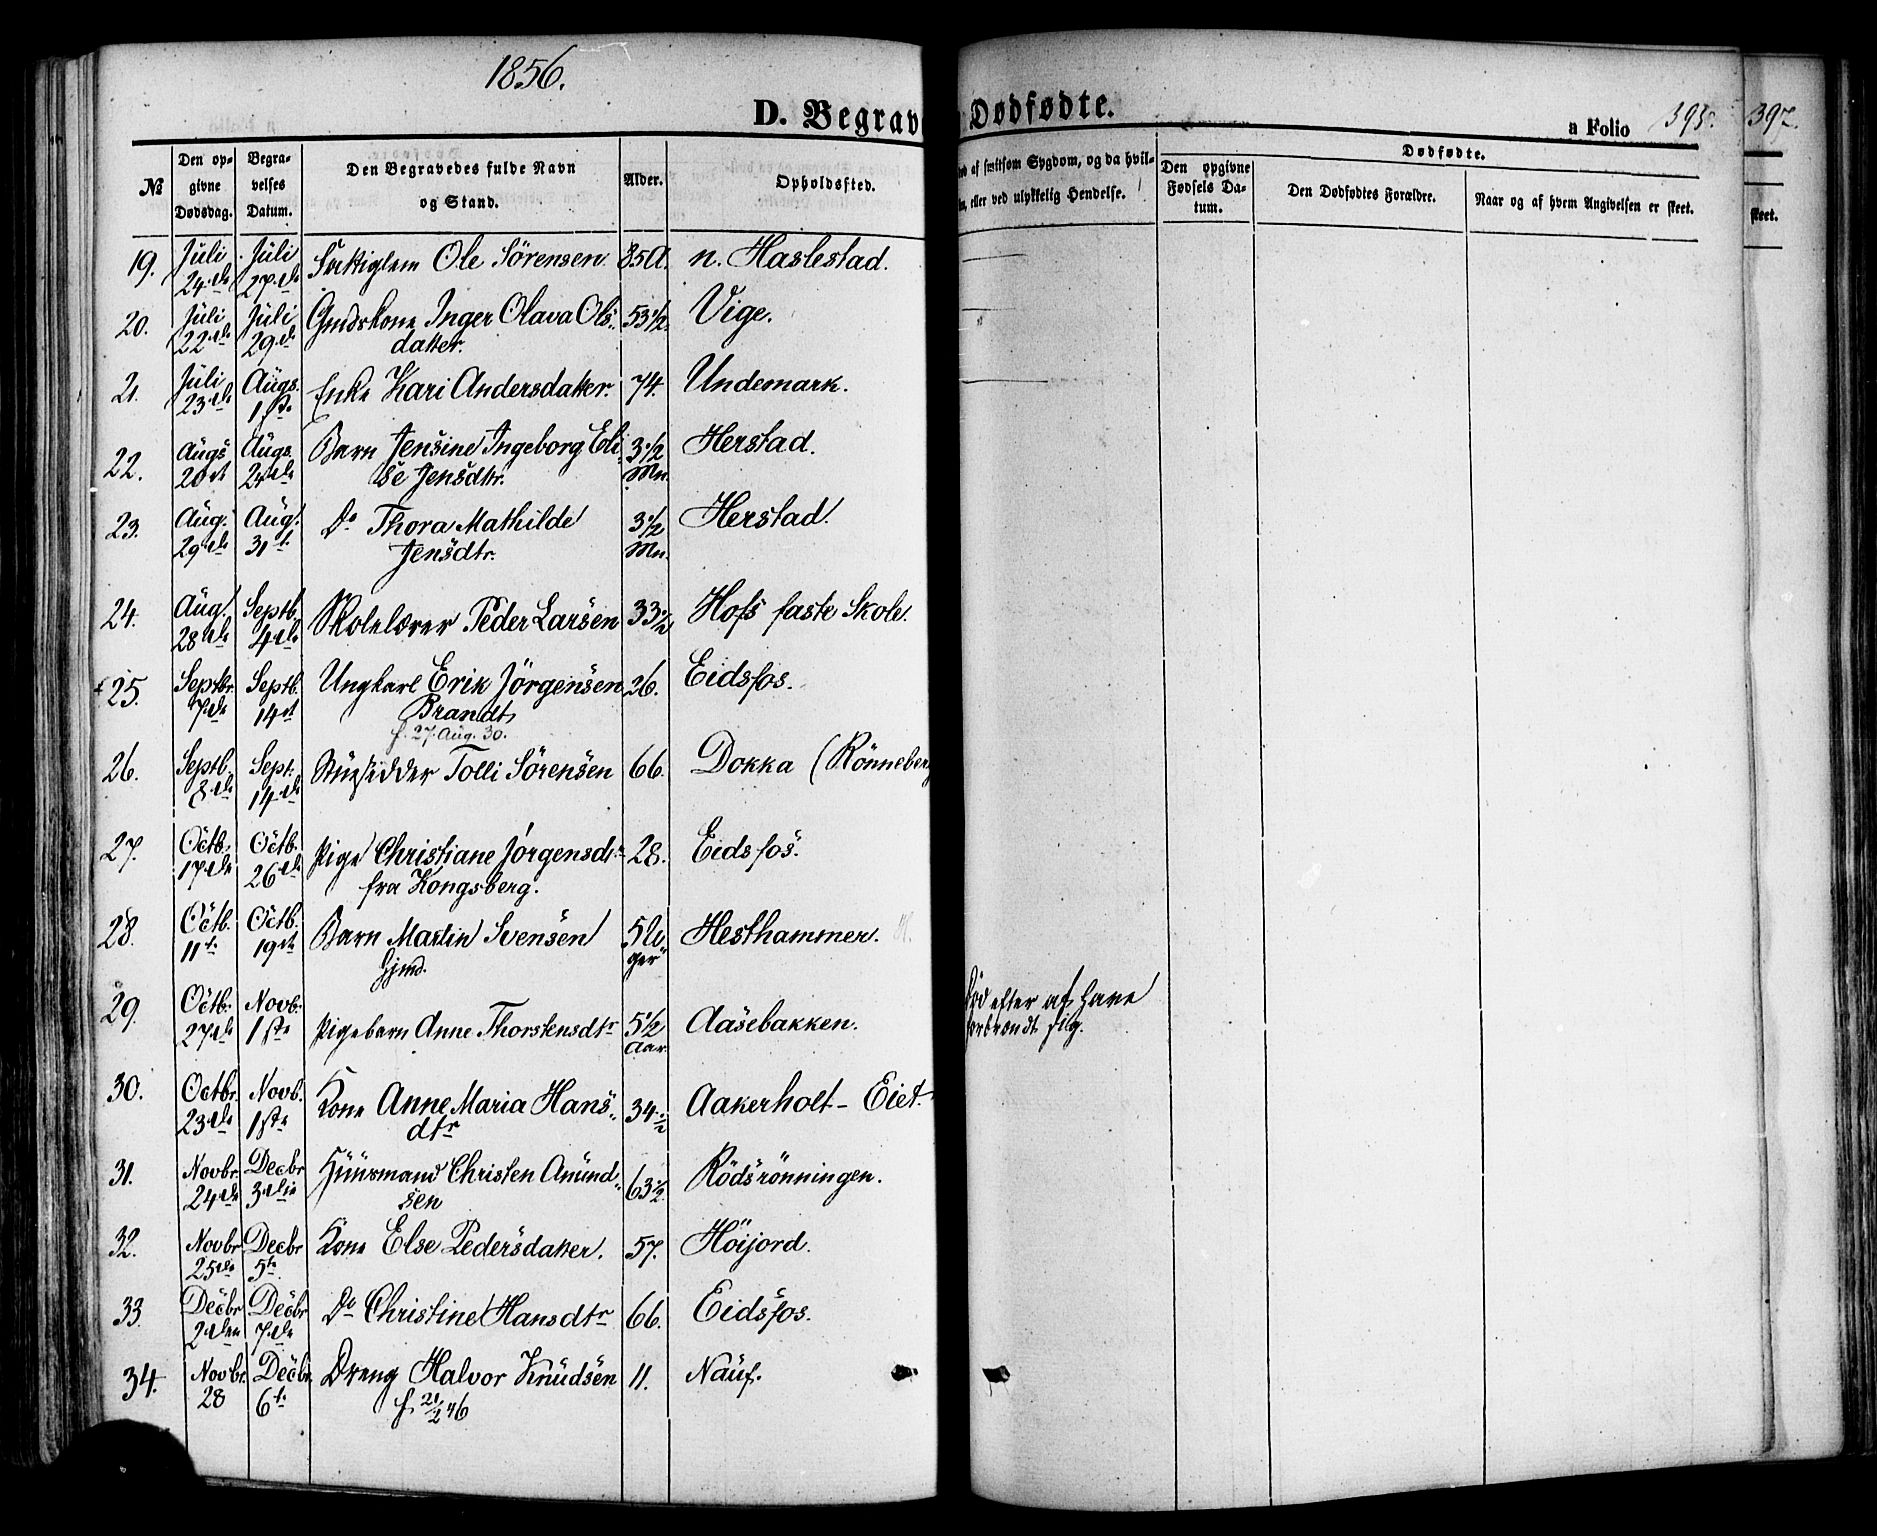 1856.
D. Begrav
Dødfødte.
a Folio 395.
397.
No
Den opgivne Dødsdag.
Begravelses Datum.
Den Begravedes fulde Navn og Stand.
Alder.
Opholdssted.
af smitsom Sygdom, og da hvil-
eller ved ulykkelig Hendelse.
Dødfødte.
Den opgivne Fødsels Datum.
Den Dødfødtes Forældre.
Naar og af hvem Angivelsen er skeet.
skeet.
19. Juli 24de Juli 27de Ole Sörensen 85 A. n. Haslestad.
20. Juli 22de Juli 29de Gmdskone Inger Olava Ols-
datter. 53 1/2. Vige.
21. Juli 23de Augs. 1ste Enke Kari Andersdatter. 74. Undemark.
22. Augs 20de Augs. 24de Barn Jensine Ingeborg Eli-
se Jensdtr. 3 1/2 Mn. Herstad.
23. Aug. 29de Aug. 31t. Do Thora Mathilde
Jensdtr. 3 1/2 Mn. Herstad.
24. Aug. 28de Septb. 4de Skolelærer Peder Larsen 33 1/2 Hofs faste Skole.
25. Septbr. 7de Septb. 14de Ungkarl Erik Jörgensen 26. Eidsfos.
Brandt
f. 27 Aug. 30.
26. Septb. 8de Sept. 14de Tolli Sörensen 66. Dokka (Rönneberg
27. Octb. 17de Octb. 26de Pige Christiane Jörgensdtr 28. Eidsfos.
fra Kongsberg.
28. Octb. 11te Octb. 19de Barn Martin Svensen 5 U-
ger Hesthammer.
Gjmd.
29. Octb. 27de Novb. 1ste Pigebarn Anne Thorstensdtr 5 1/2 Aar. Aasebakken.
Död efter at have
forbrændt sig.
30. Octbr. 23de Novb. 1ste Kone Anne Maria Hans-
dtr 34 1/2 Aakerholt - Eiet.
31. Novbr. 24de Decbr 3die Huusmand Christen Amund-
sen 63 1/2. Rödsrönningen.
32. Novbr 25de Decbr 5te Kone Else Pedersdatter. 57. Höijord.
33. Decbr 2den Decbr 7de Do Christine Hansdtr 66. Eidsfos.
34. Novbr. 28 Decbr. 6te Dreng Halvor Knudsen 11. Nauf.
f. 21/2 46